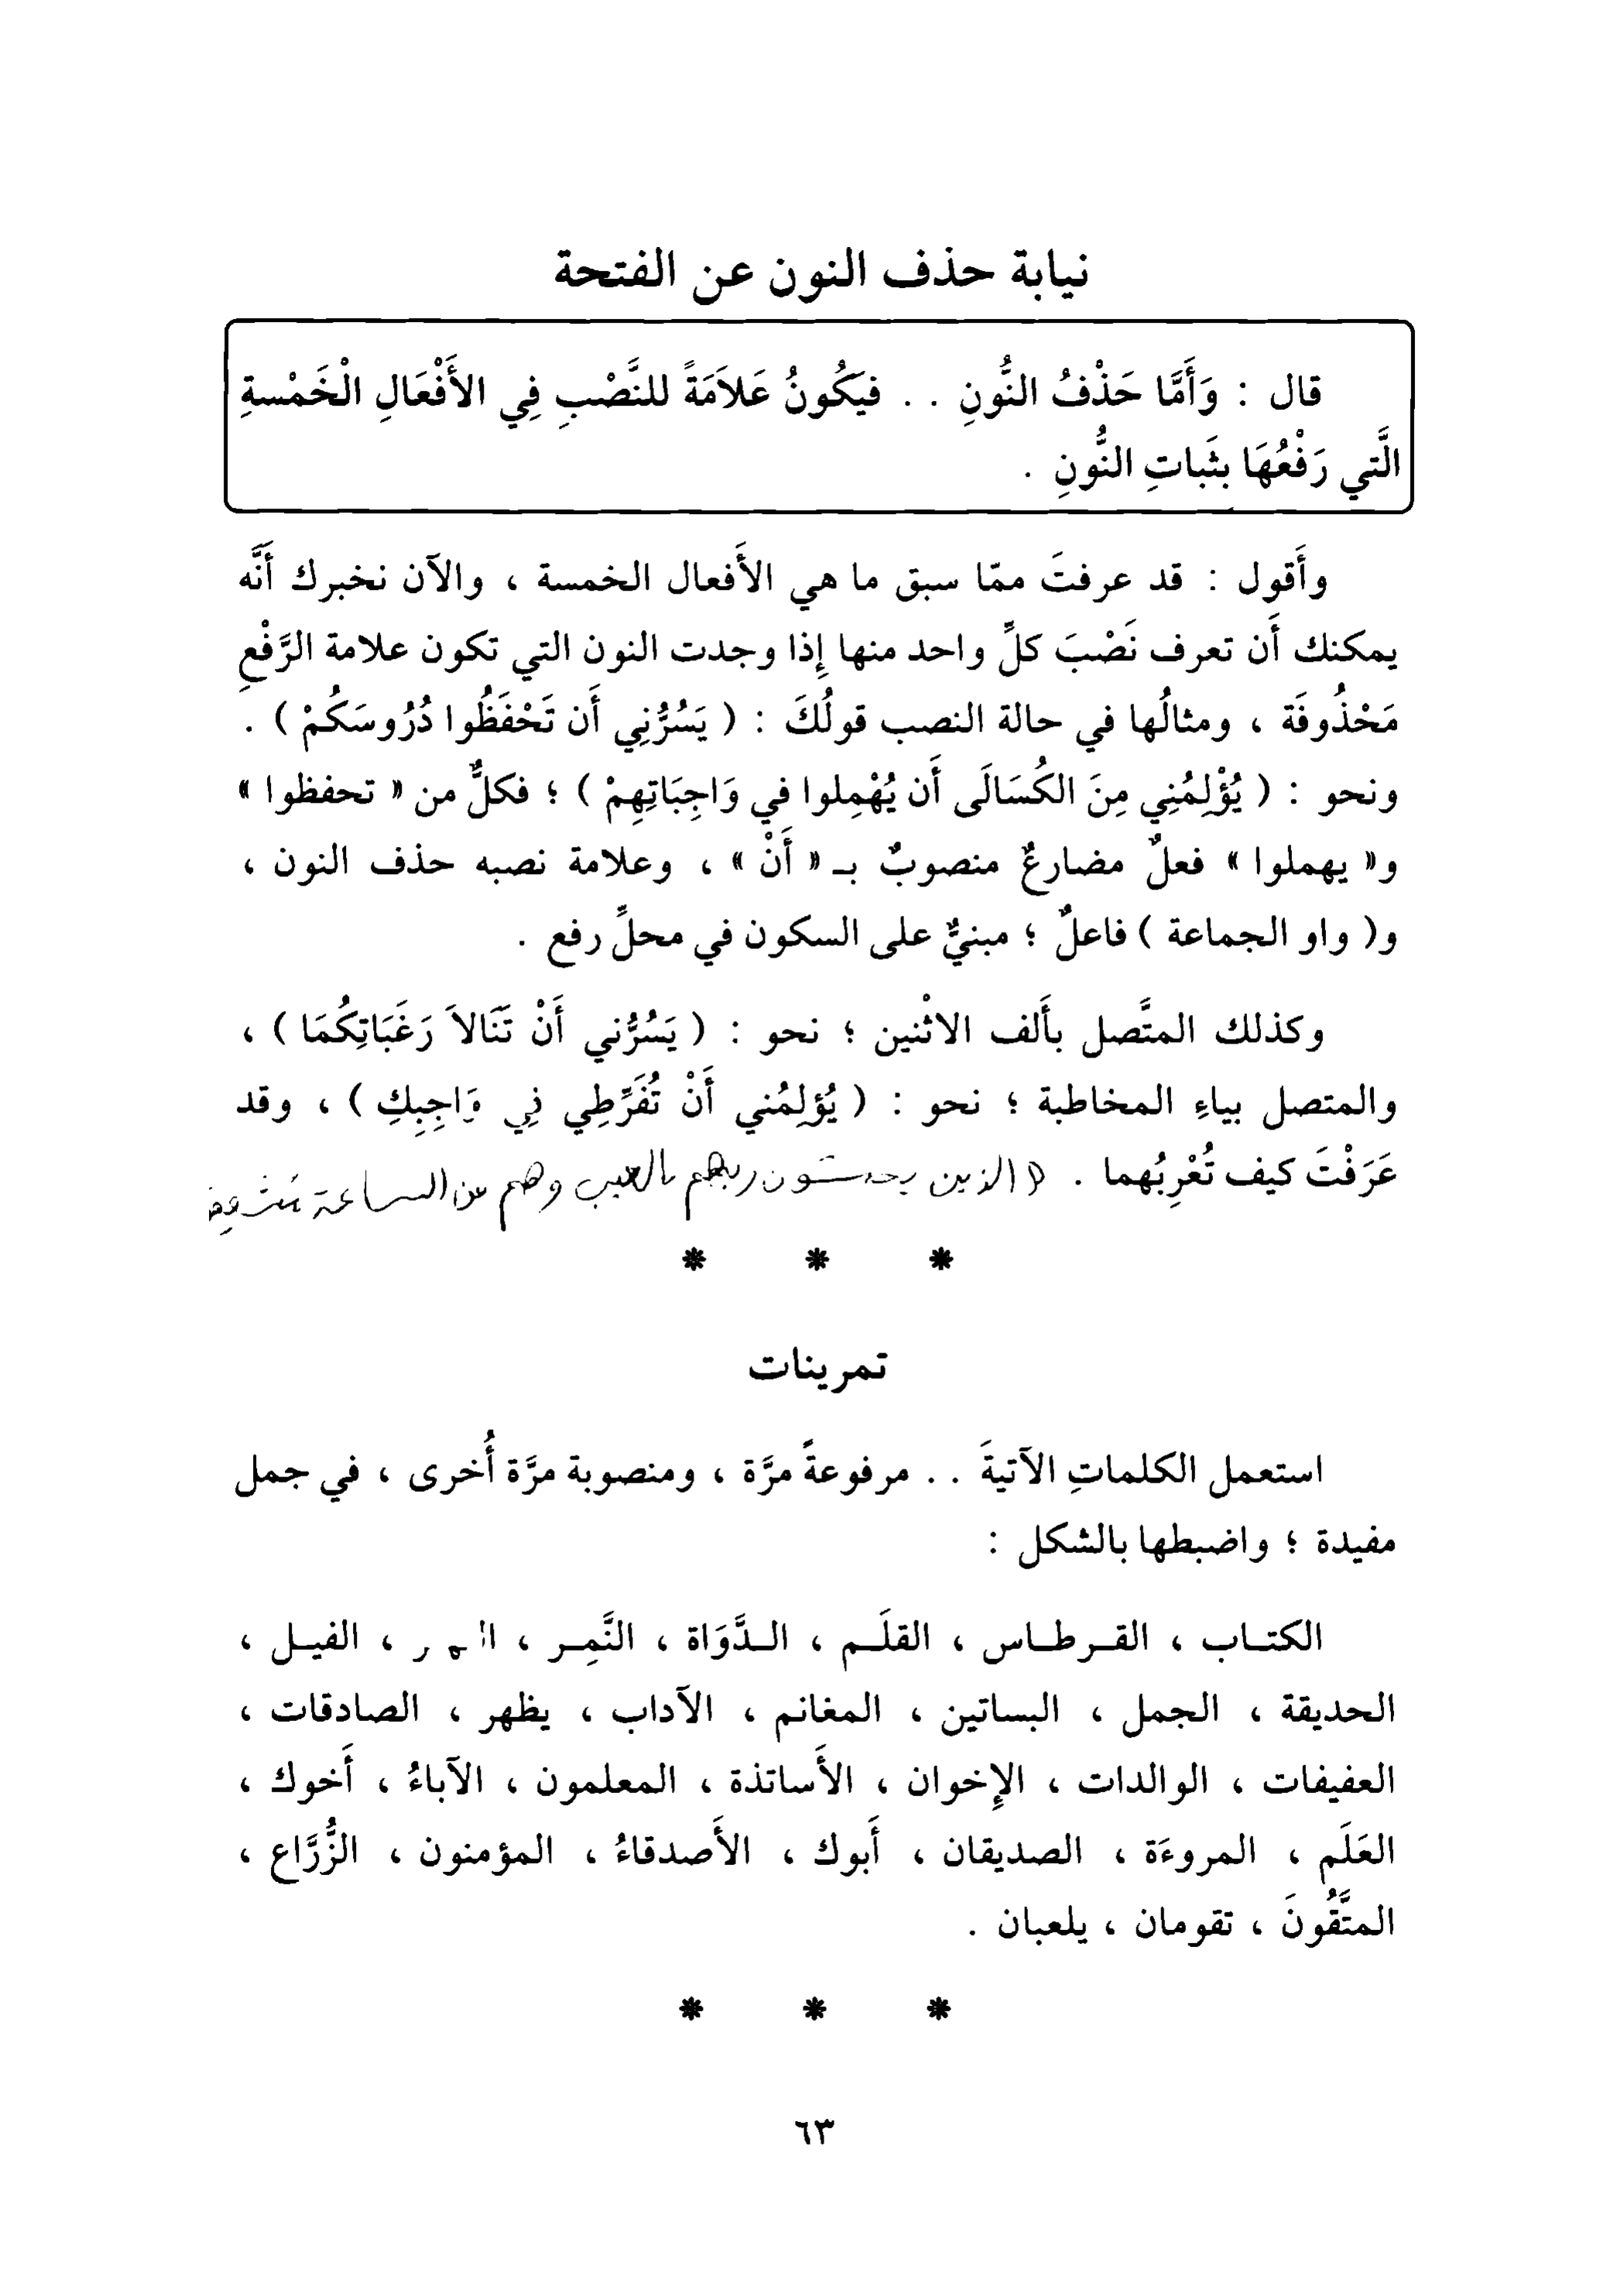 نيابة حذف النون عن الفتحة
قال : وَأَمَّا حَذْفُ النُّونِ . . فيَكُونُ عَلاَمَةً للنَّصْبِ فِي الأَفْعَالِ الْخَمْسةِ
الَّتي رَفْعُهَا بثَباتِ النُّونِ .
وأَقول : قد عرفتَ ممّا سبق ما هي الأَفعال الخمسة ، والآن نخبرك أَنَّه
يمكنك أَن تعرف نَصْبَ كلِّ واحد منها إِذا وجدت النون التي تكون علامة الرَّفْعِ
مَحْذُوفَة ، ومثالُها في حالة النصب قولُكَ : ( يَسُرُّنِي أَن تَحْفَظُوا دُرُوسَكُمْ ) .
ونحو : ( يُؤْلِمُنِي مِنَ الكُسَالَى أَن يُهْمِلوا في وَاجِبَاتِهِمْ ) ؛ فكلٌّ من « تحفظوا »
و« يهملوا » فعلٌ مضارعٌ منصوبٌ بـ « أَنْ » ، وعلامة نصبه حذف النون ،
و( واو الجماعة ) فاعلٌ ؛ مبنيٌّ على السكون في محلِّ رفع .
وكذلك المتَّصل بأَلف الاثْنين ؛ نحو : ( يَسُرُّني أَنْ تَنَالاَ رَغَبَاتِكُمَا ) ،
والمتصل بياءِ المخاطبة ؛ نحو : ( يُؤلِمُني أَنْ تُفَرِّطِي فِي وَاجِبِكِ ) ، وقد
عَرَفْتَ كيف تُعْرِبُهما . (( الذين يخشون ربهم بالغيب وهم من الساعة
* * *
تمرينات
استعمل الكلماتِ الآتيةَ . . مرفوعةً مرَّة ، ومنصوبة مرَّة أُخرى ، في جمل
مفيدة ؛ واضبطها بالشكل :
الكتـاب ، القـرطـاس ، القلَـم ، الـدَّوَاة ، النَّمِـر ، ، الفيـل ،
الحديقة ، الجمل ، البساتين ، المغانم ، الآداب ، يظهر ، الصادقات ،
العفيفات ، الوالدات ، الإِخوان ، الأَساتذة ، المعلمون ، الآباءُ ، أَخوك ،
العَلَم ، المروءَة ، الصديقان ، أَبوك ، الأَصدقاءُ ، المؤمنون ، الزُّرَّاع ،
المتَّقُونَ ، تقومان ، يلعبان .
* * *
٦٣